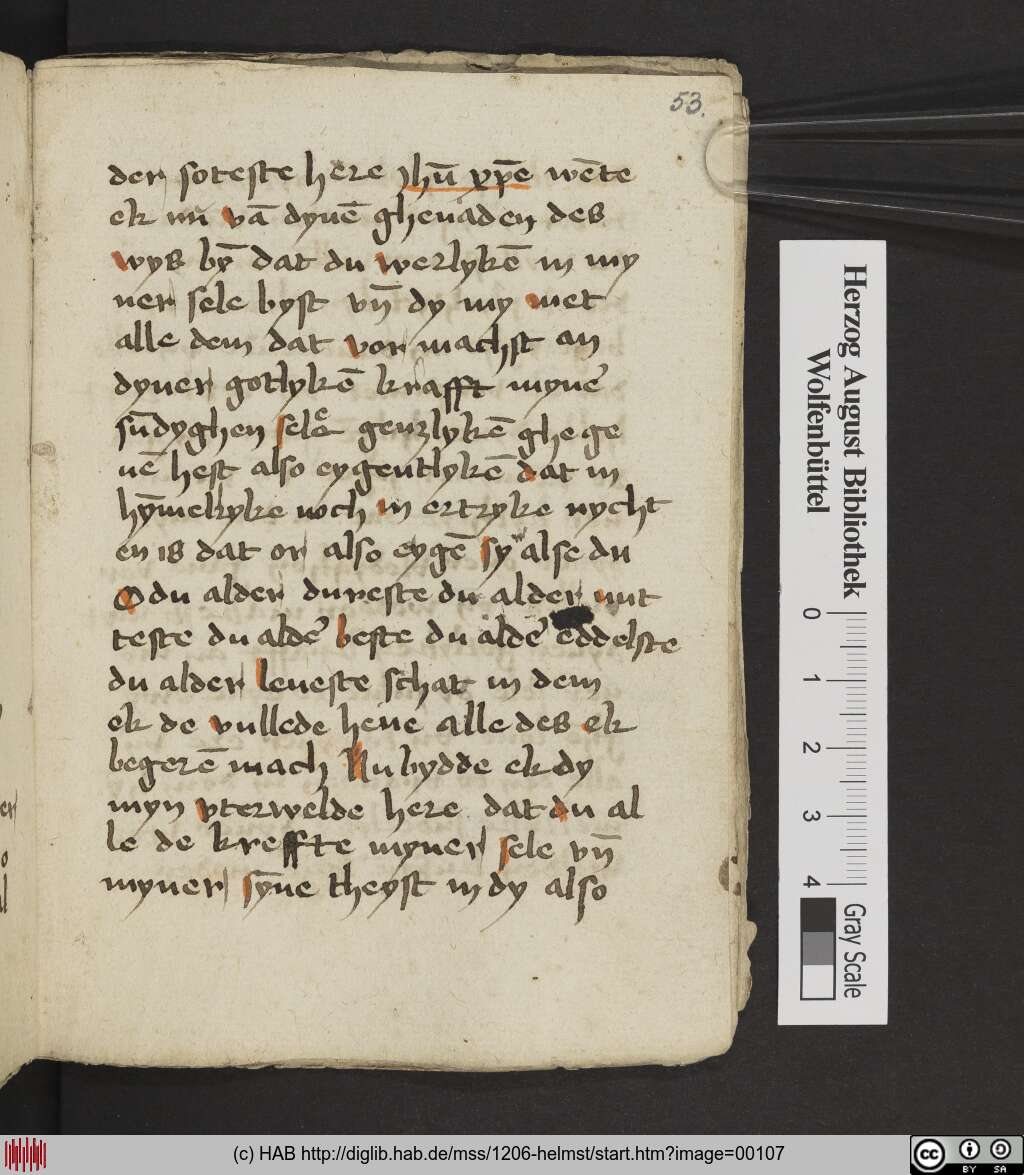 53.
der soteste here ihū xpē wēte
ek nu vā dynē ghenaden des
wys bȳ dat du werlykē in my
ner sele byst vn̄ dy my met
alle dem dat vor machst an
dyner gotlykē krafft myne᷑
sūdyghen sele genzlykē ghe ge
uē hest also eygentlykē dat in
hȳmelryke noch in ertryke nycht
en is dat or also eygē sy alse du
O du alder dureste du alder nut
teste du alde᷑ beste du alde᷑ eddelste
du alder leueste schat in dem
ek de vullede hene alle des ek
begerē mach Nu bydde ek dy
myn vterwelde here dat du al
le de kreffte myner sele vn̄
myner sȳne theyst in dy also
Herzog August Bibliothek
Wolfenbüttel
0 1 2 3 4
Gray Scale
(c) HAB http://diglib.hab.de/mss/1206-helmst/start.htm?image=00107
cc BY SA